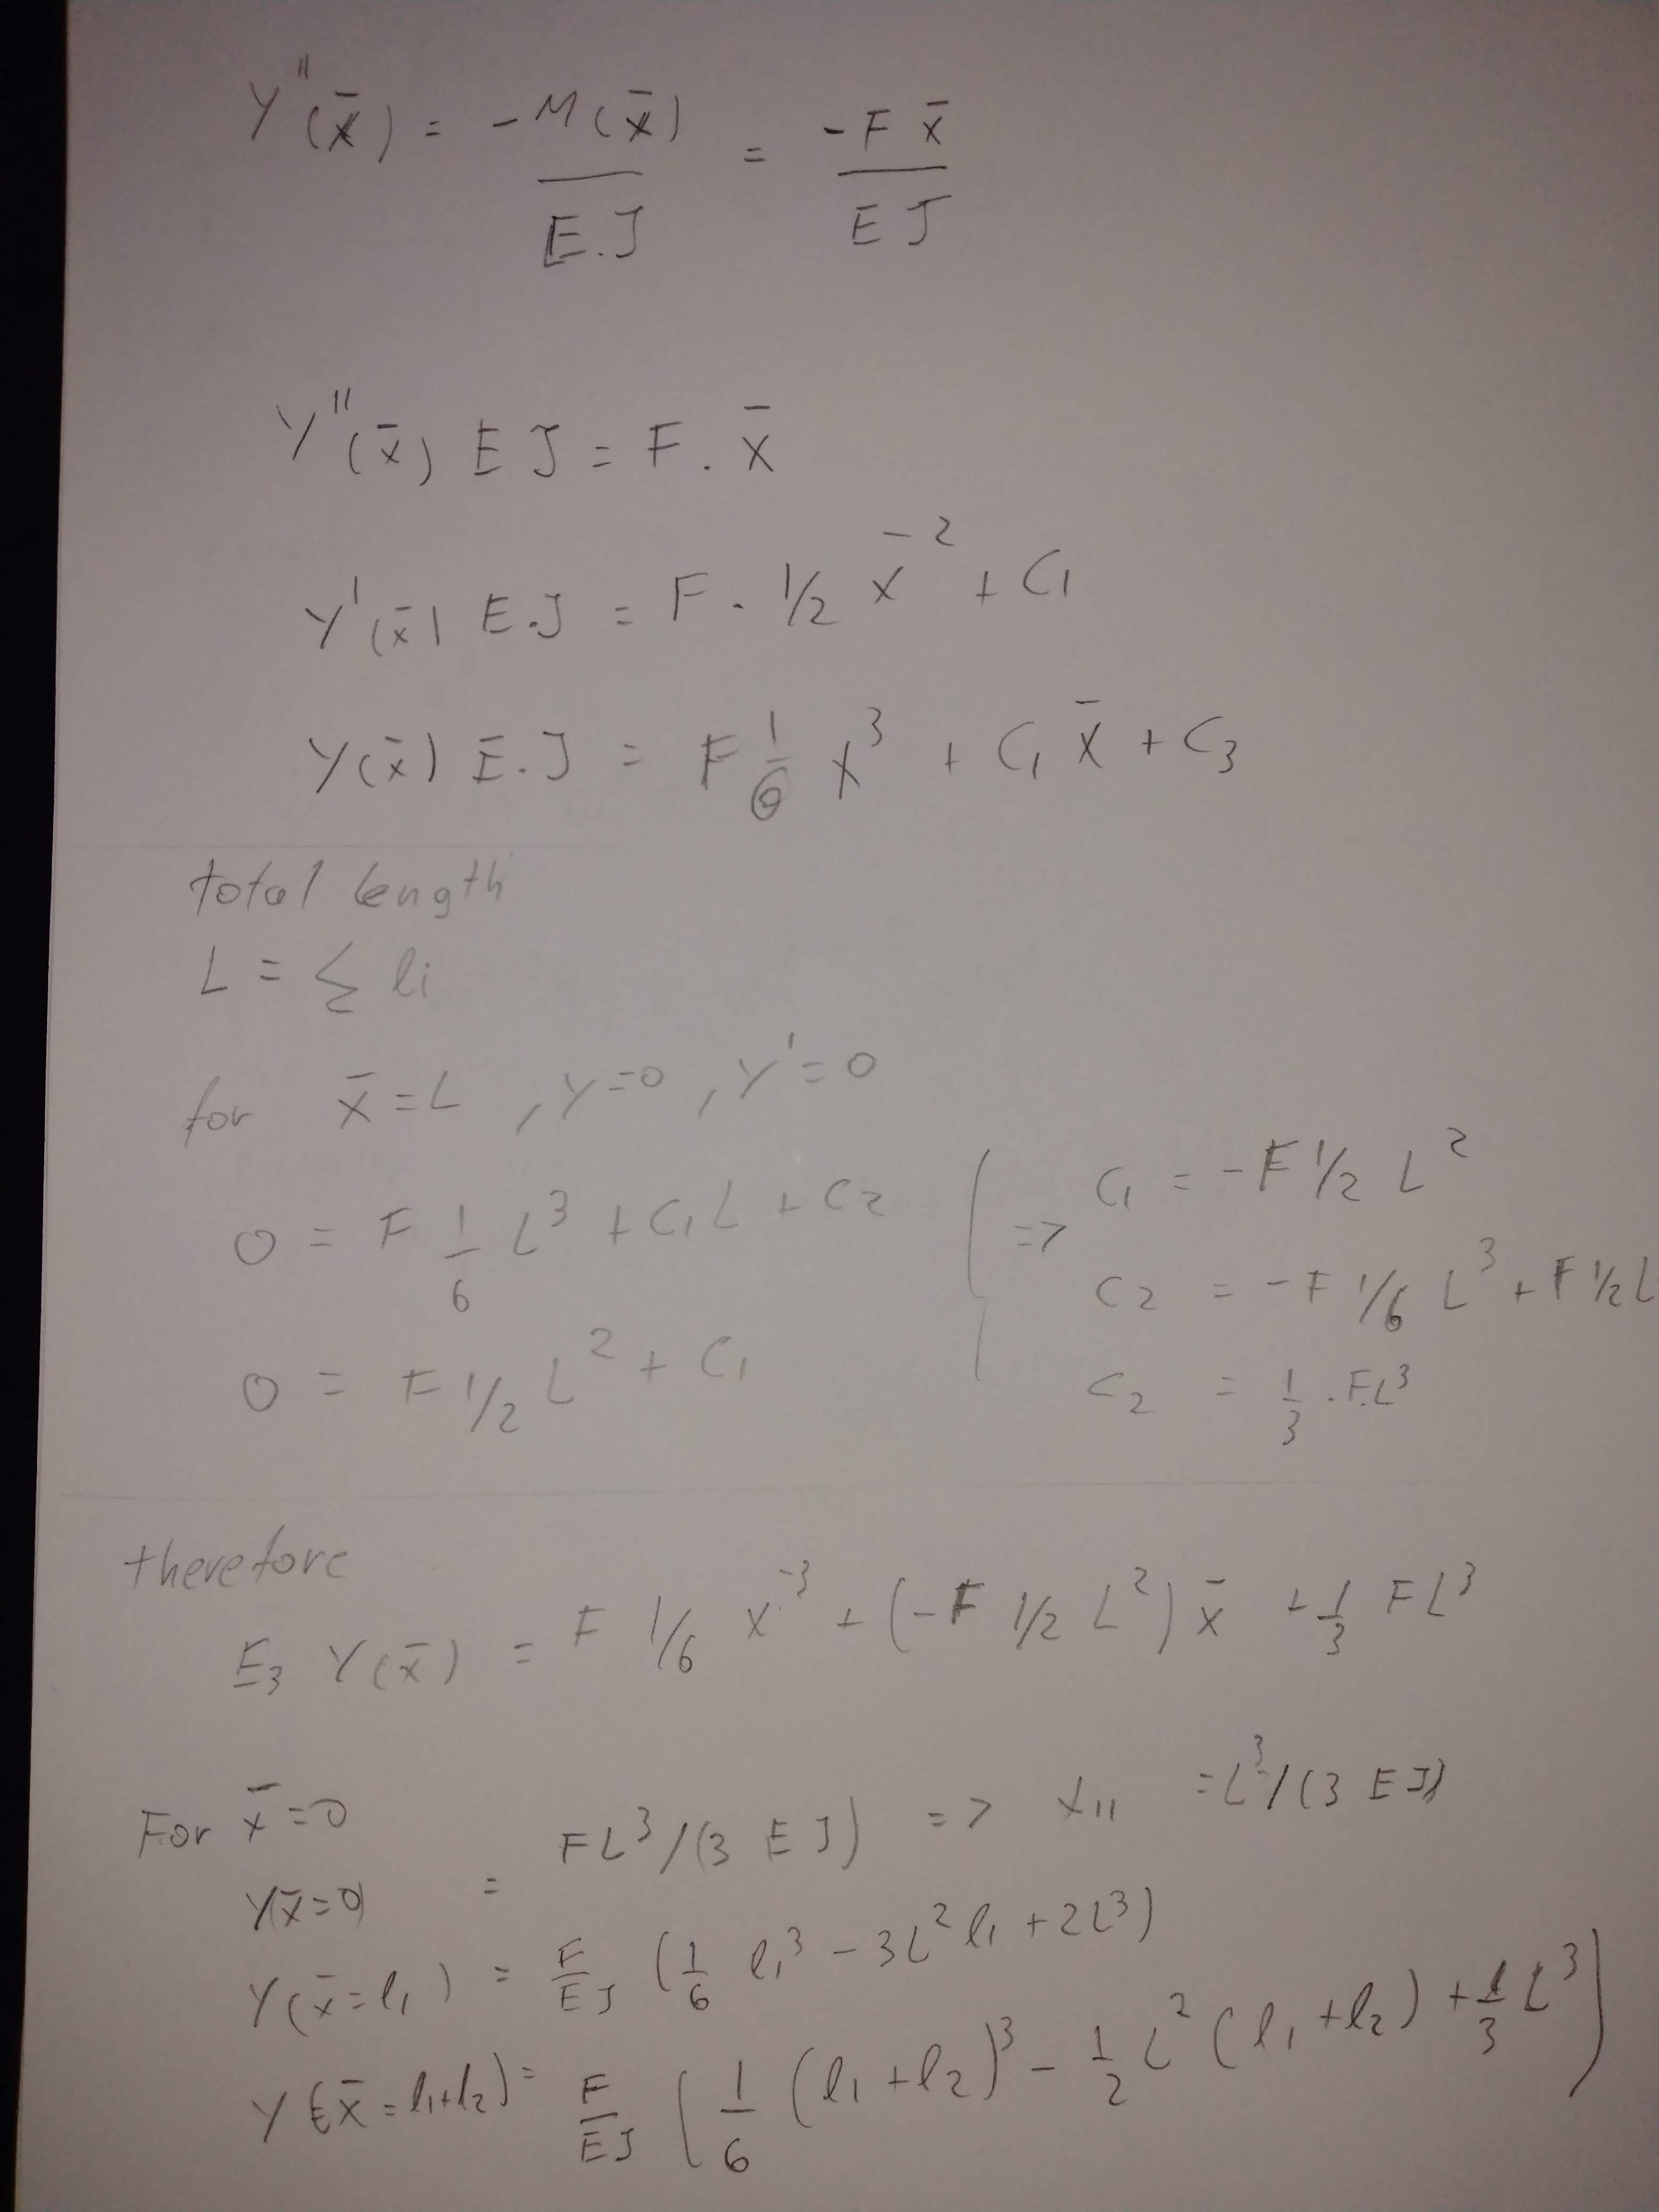 Y''(x̄) = -M(x̄)/E.J = -F x̄/EJ
Y''(x̄) E J = F . x̄
Y'(x̄) E.J = F . 1/2 x̄² + C₁
Y(x̄) E.J = F 1/6 x³ + C₁ x̄ + C₃
total length
L = Σ li
for x̄ = L , y=0 , y'=0
0 = F 1/6 L³ + C₁ L + C₂
0 = F 1/2 L² + C₁
=> C₁ = -F 1/2 L²
C₂ = -F 1/6 L³ + F 1/2 L
C₂ = 1/3 . F.L³
therefore
EJ Y(x̄) = F 1/6 x̄³ + (-F 1/2 L²) x̄ + 1/3 FL³
For x̄=0
Y(x̄=0) = FL³/(3 E J) => α₁₁ = L³/(3 EJ)
Y(x̄=l₁) = F/EJ (1/6 l₁³ - 3L² l₁ + 2L³)
Y(x̄=l₁+l₂) = F/EJ (1/6 (l₁+l₂)³ - 1/2 L² (l₁+l₂) + 1/3 L³)